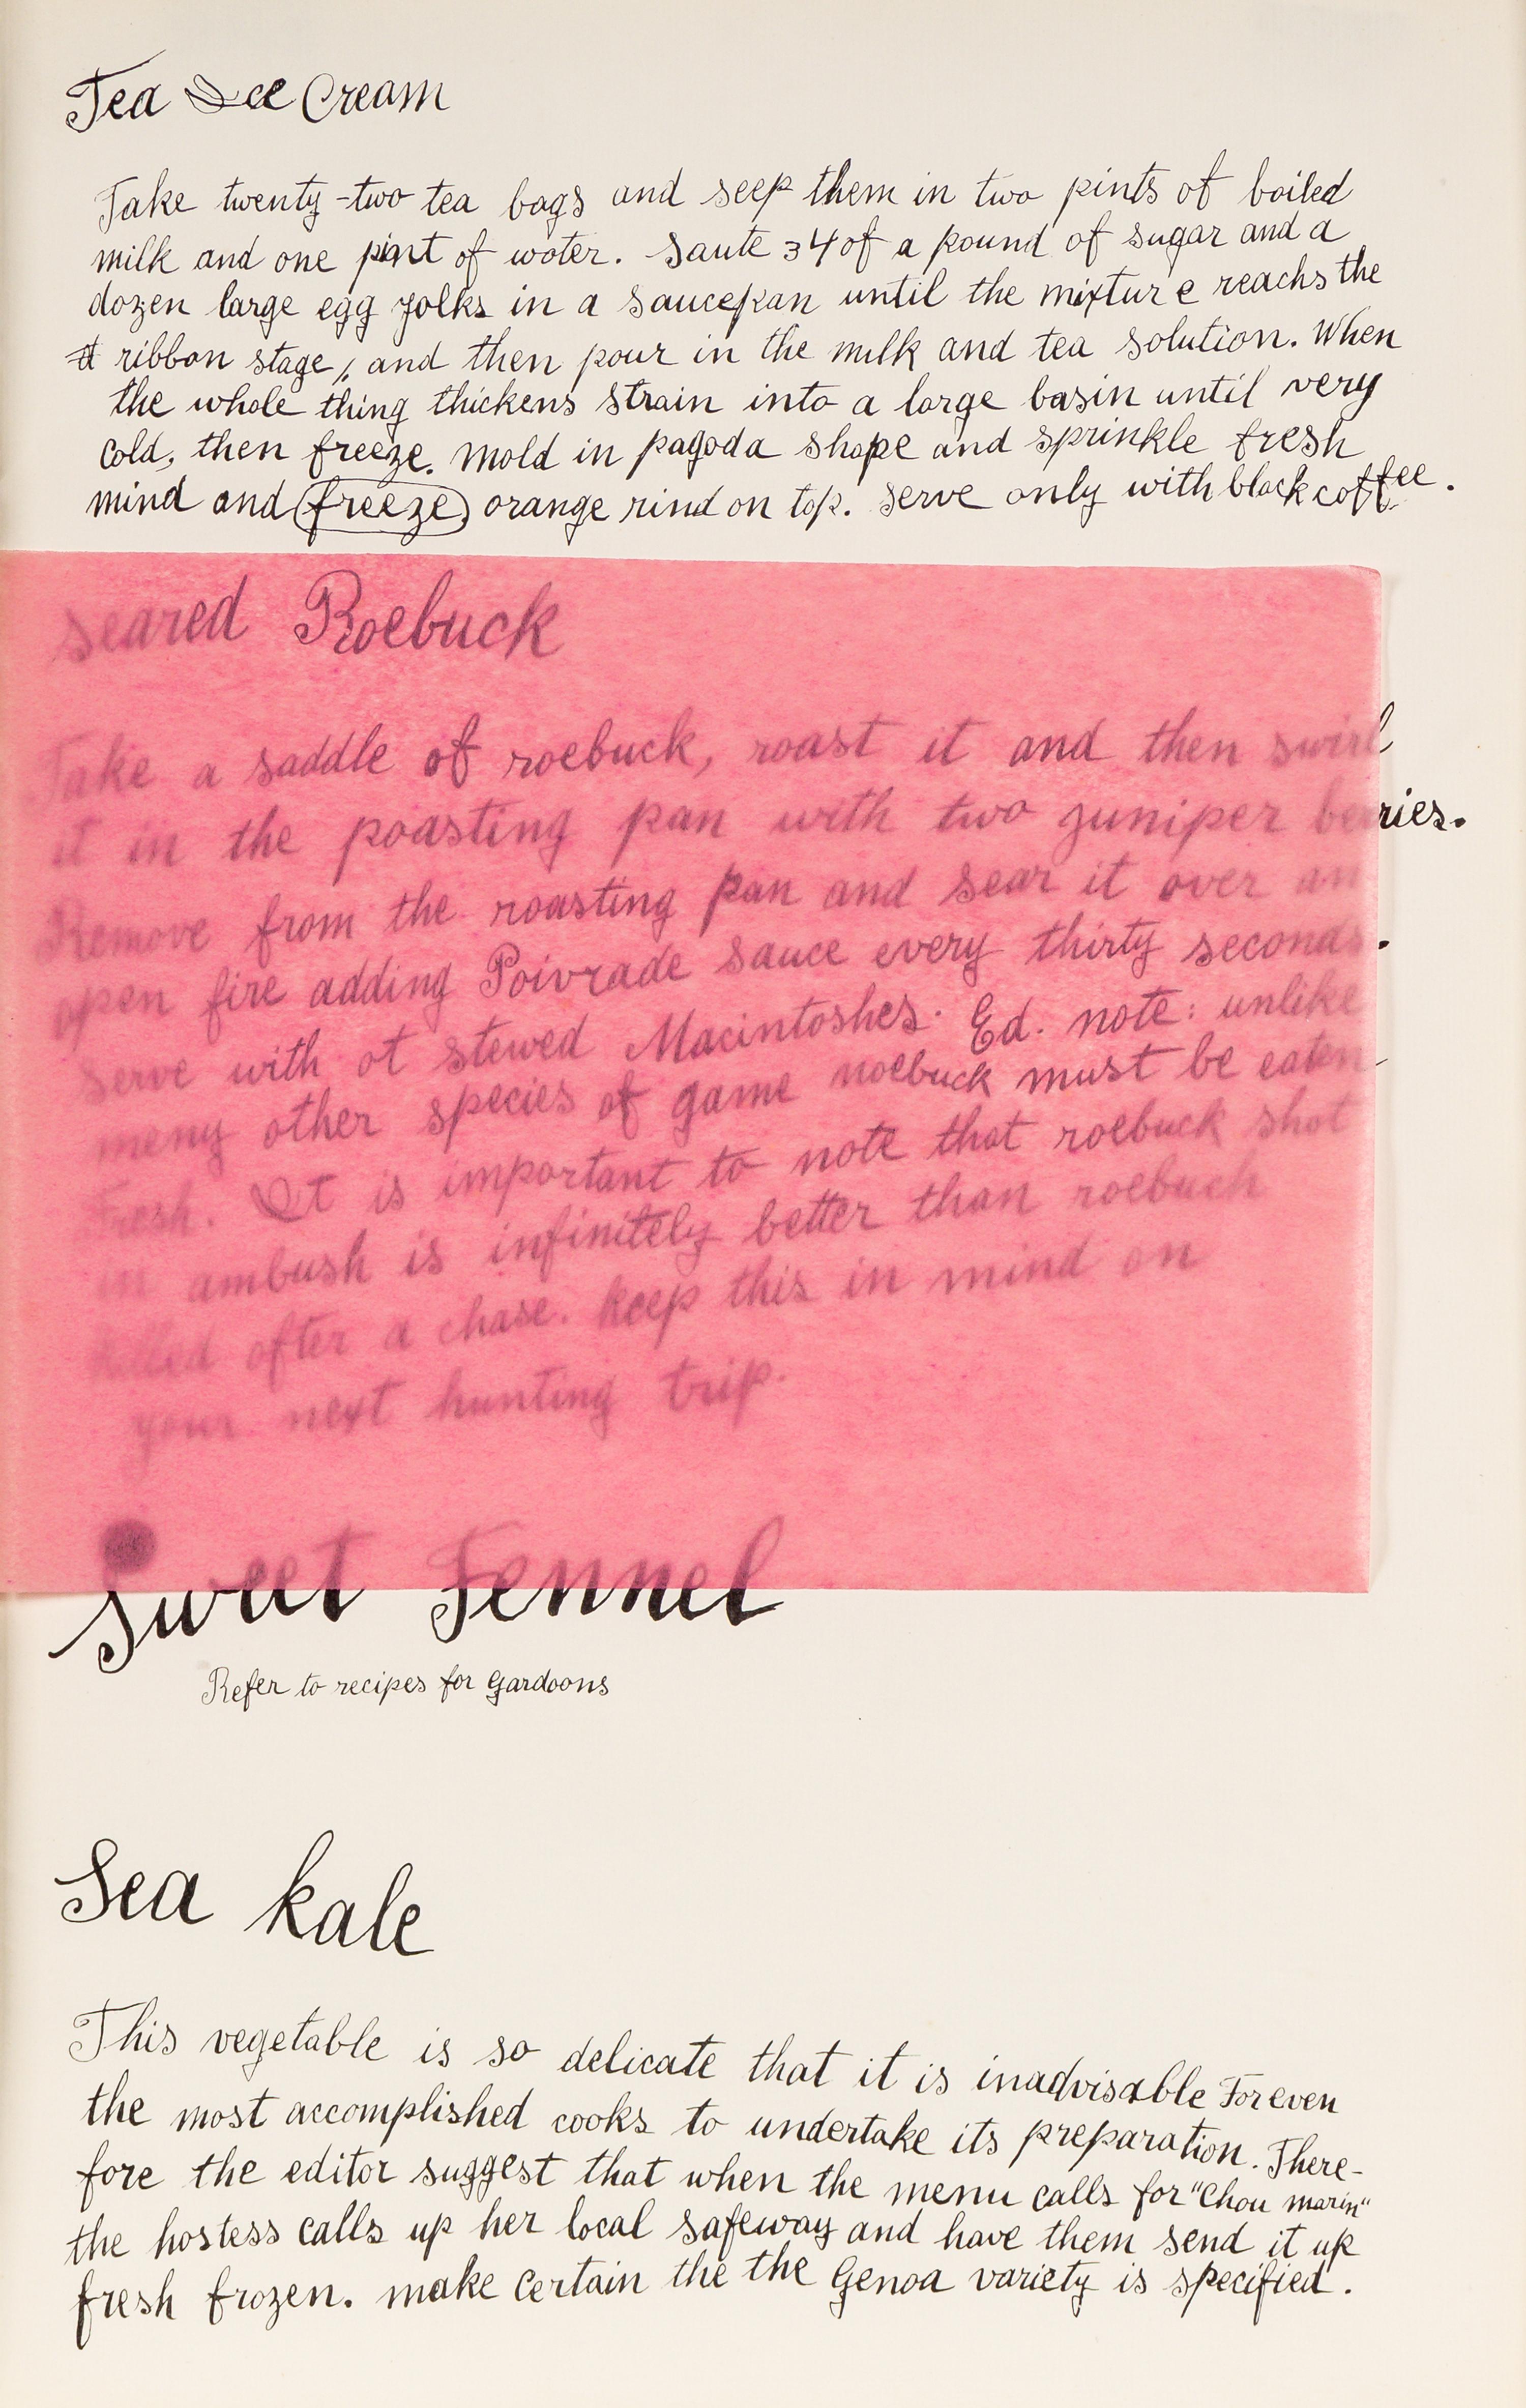 Tea Ice Cream
Take twenty-two tea bags and seep them in two pints of boiled
milk and one pint of woter. Saute 34 of a pound of sugar and a
dozen large egg yolks in a saucepan until the mixture reachs the
ribbon stage, and then pour in the milk and tea solution. When
the whole thing thickens strain into a large basin until very
cold, then freeze. Mold in pagoda shape and sprinkle fresh
mind and freeze orange rind on top. Serve only with black coffee.
Seared Roebuck
Take a saddle of roebuck, roast it and then swirl
it in the poasting pan with two juniper berries.
Remove from the roasting pan and sear it over an
open fire adding Poivrade sauce every thirty seconds.
Serve with ot stewed Macintoshes. Ed. note: unlike
meny other species of game noebuck must be eaten
Fresh. It is important to note that roebuck shot
in ambush is infinitely better than roebuch
killed after a chase. Keep this in mind on
your next hunting trip.
Sweet Fennel
Refer to recipes for Gardoons
Sea kale
This vegetable is so delicate that it is inadvisable For even
the most accomplished cooks to undertake its preparation. There-
fore the editor suggest that when the menu calls for "Chou marin"
the hostess calls up her local Safeway and have them send it up
fresh frozen. make Certain the the Genoa variety is specified.